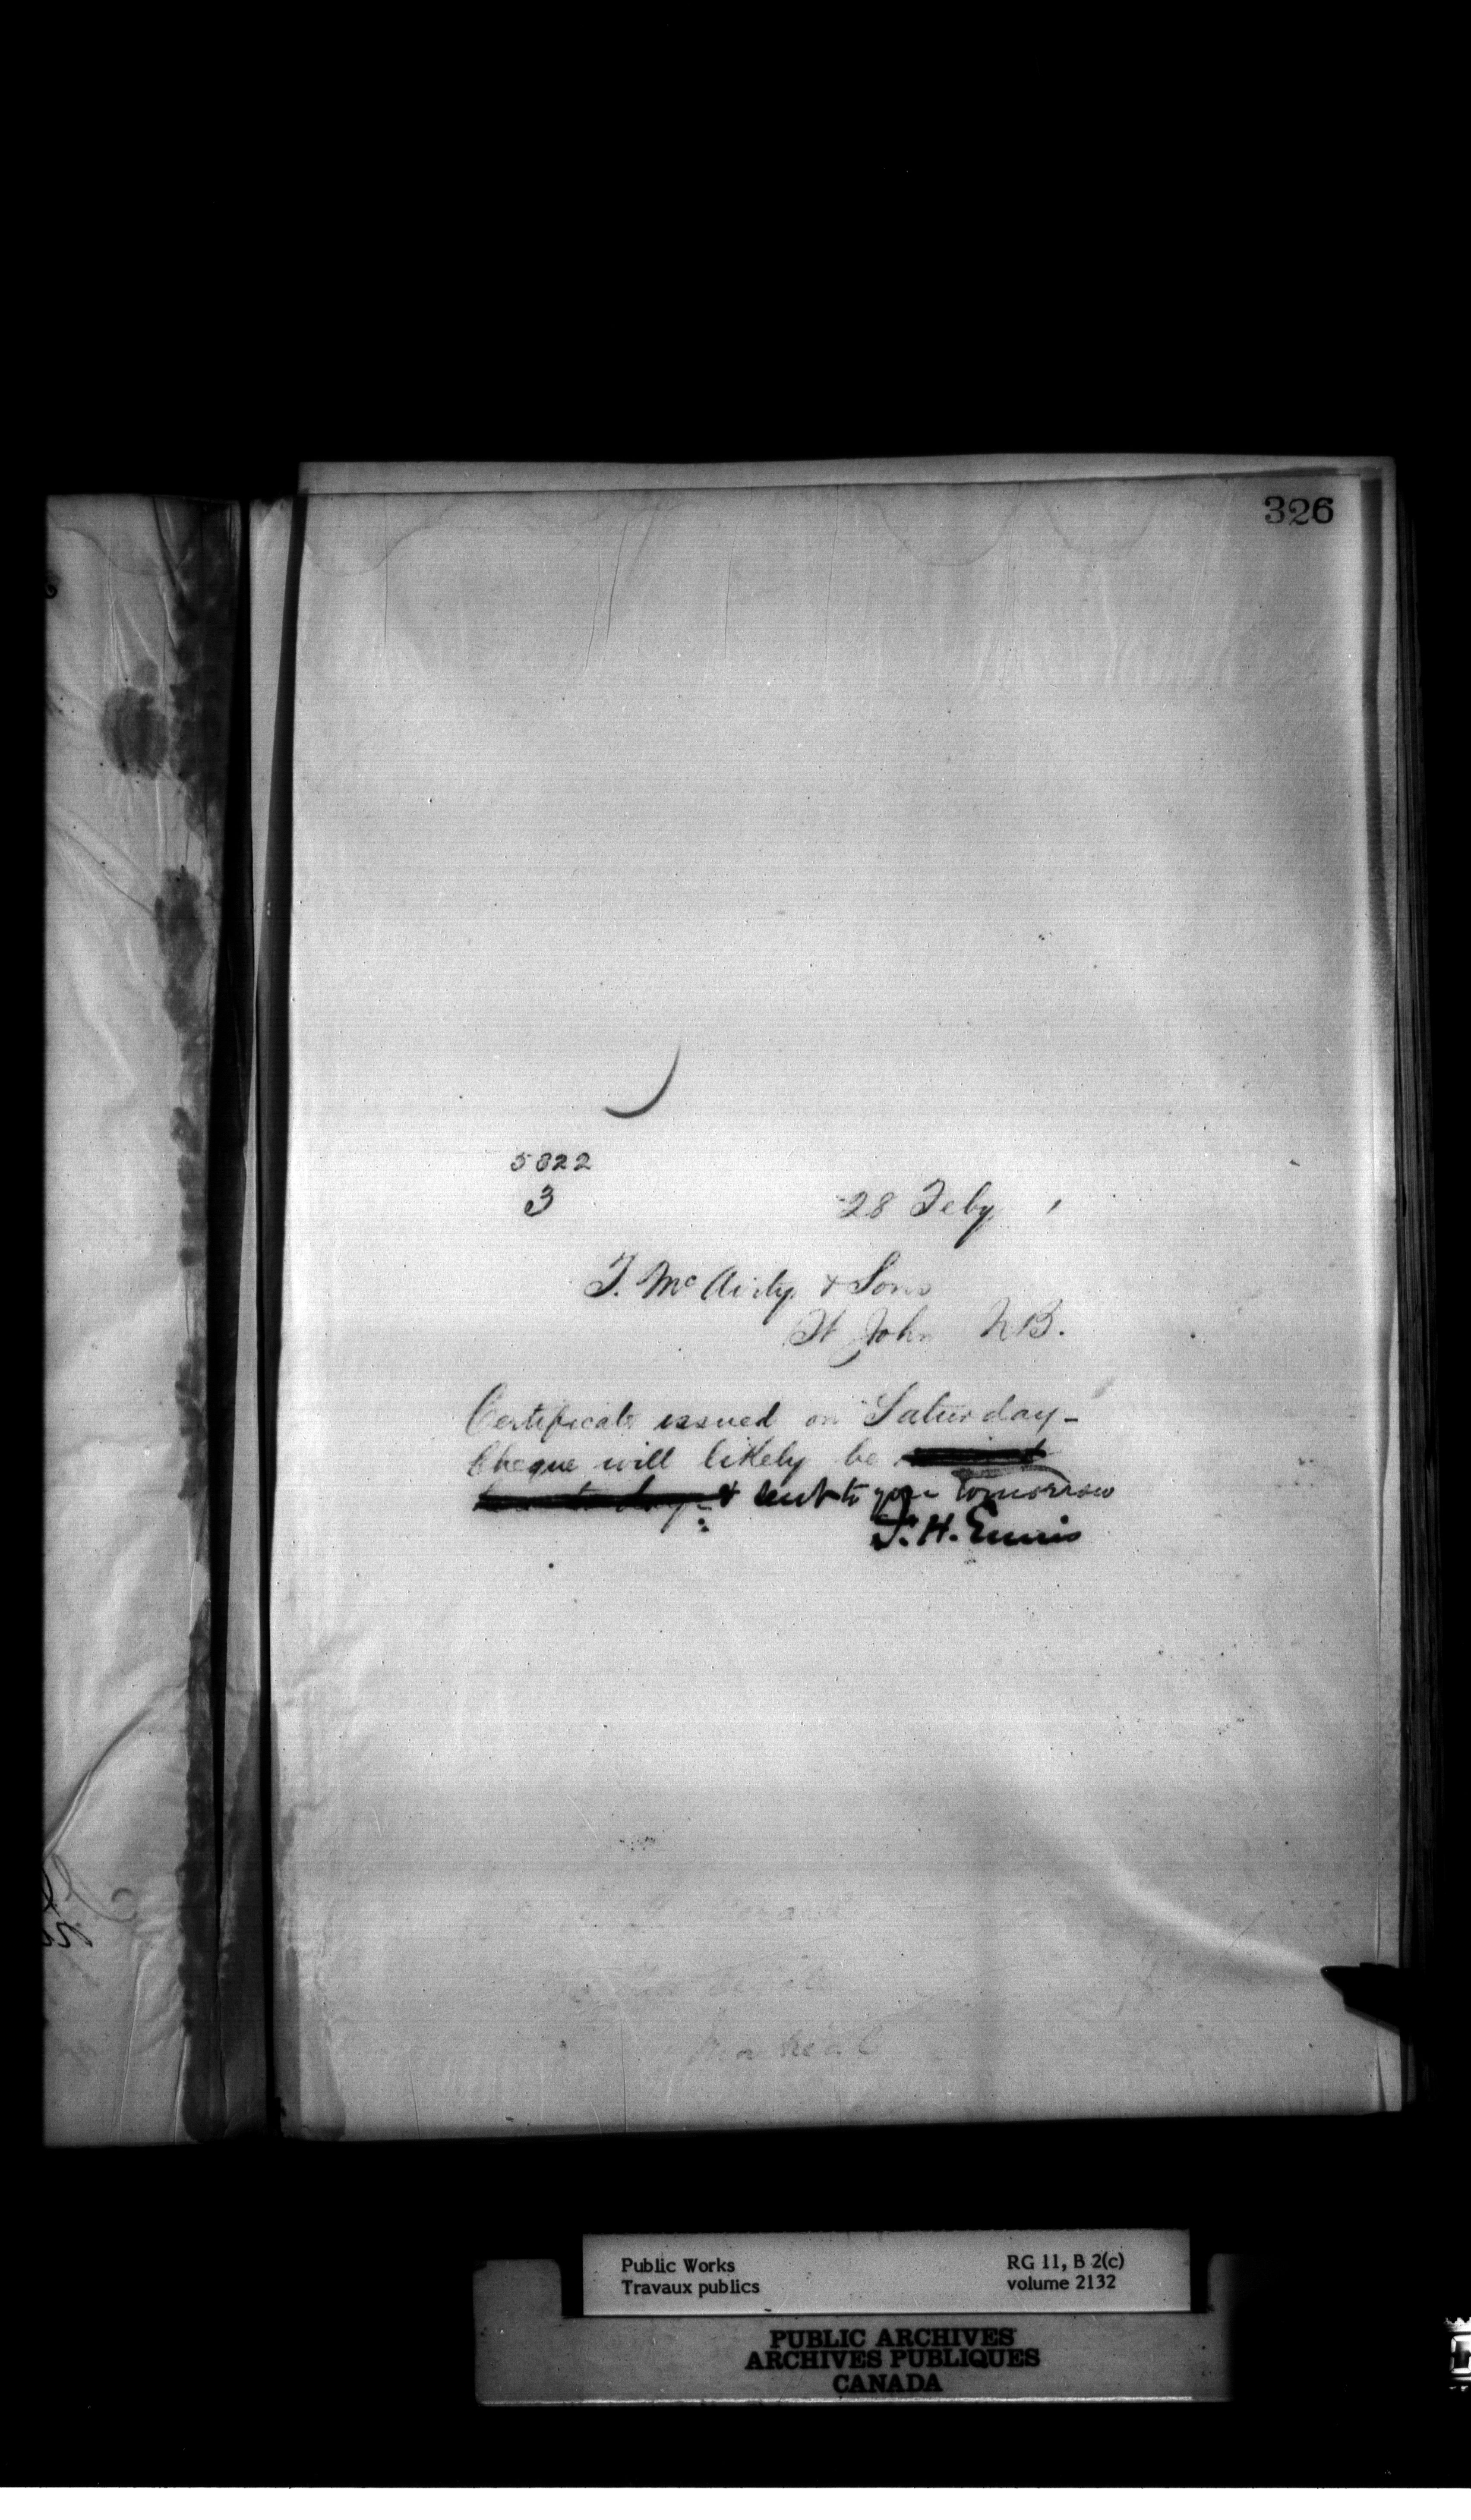 326
5822
3
28 Feby
T. McAvity & Sons
St John N.B.
Certificate issued on Saturday -
Cheque will likely be
& sent to you tomorrow
T. H. Ennis
Public Works
Travaux publics
RG 11, B 2(c)
volume 2132
PUBLIC ARCHIVES
ARCHIVES PUBLIQUES
CANADA